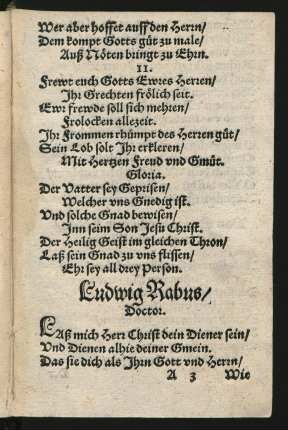 Wer aber hoffet auff den Herrn/
Dem kompt Gotts güt zu male/
Auß Nöten bringt zu Ehrn.
11.
Frewt euch Gotts Ewres Herren/
Ihr Grechten frölich seit.
Ewr frewde söll sich mehren/
Frolocken allezeit.
Ihr Frommen rhümpt des Herren güt/
Sein Lob solt Ihr erkleren/
Mit Hertzen Freud vnd Gmüt.
Gloria.
Der Vatter sey Geprisen/
Welcher vns Gnedig ist.
Vnd solche Gnad bewisen/
Inn seim Son Jesu Christ.
Der Heilig Geist im gleichen Thron/
Laß sein Gnad zu vns flissen/
Ehr sey all drey Person.
Ludwig Rabus/
Doctor.
LAß mich Herr Christ dein Diener sein/
Vnd Dienen alhie deiner Gmein.
Das sie dich als Ihrn Gott vnd Herrn/
A 3 Wie